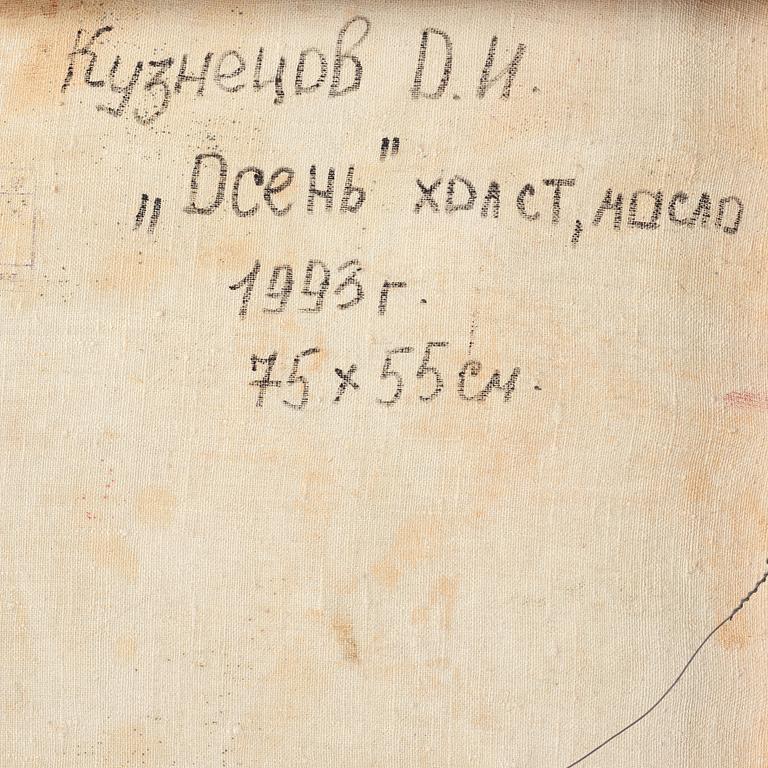 Кузнецов О.И.
„Осень" холст, масло
1993 г.
75 x 55 см.